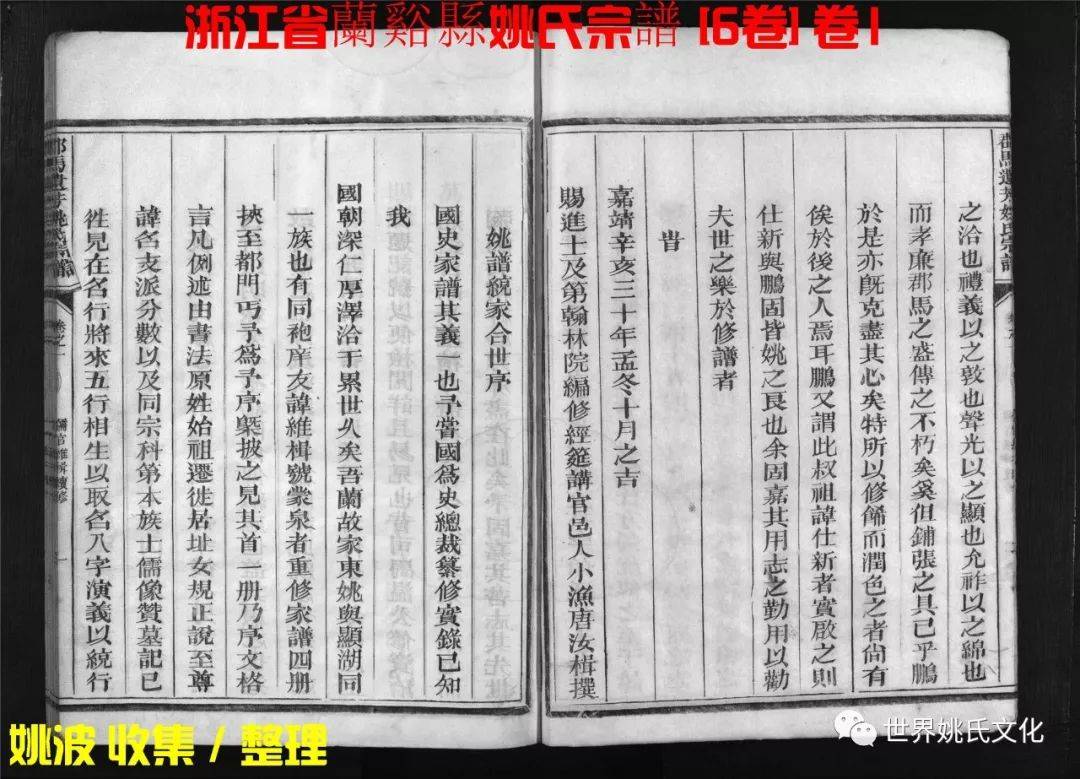 浙江省蘭谿縣姚氏宗譜 [6卷] 卷1
之洽也禮義以之敦也聲光以之顯也允祚以之綿也
而孝廉郡馬之盛傳之不朽矣奚但鋪張之具已乎鵬
於是亦旣克盡其心矣特所以修餙而潤色之者尙有
俟於後之人焉耳鵬又謂此叔祖諱仕新者實啟之則
仕新與鵬固皆姚之良也余固嘉其用志之勤用以勸
夫世之樂於修譜者
旹
嘉靖辛亥三十年孟冬十月之吉
賜進士及第翰林院編修經筵講官邑人小漁唐汝楫撰
姚譜統家合世序
國史家譜其義一也予嘗國爲史總裁纂修實錄已知
我
國朝深仁厚澤洽于累世久矣吾蘭故家東姚與顯湖同
一族也有同袍庠友諱維楫號蒙泉者重修家譜四册
挾至都門丐予爲予序槩披之見其首一册乃序文格
言凡例述由書法原姓始祖遷徙居址女規正說至尊
諱名支派分數以及同宗科第本族士儒像贊墓記已
徃見在名行將來五行相生以取名八字演義以統行
郡馬遺芳姚氏宗譜
卷之一
姚波 收集 / 整理
世界姚氏文化